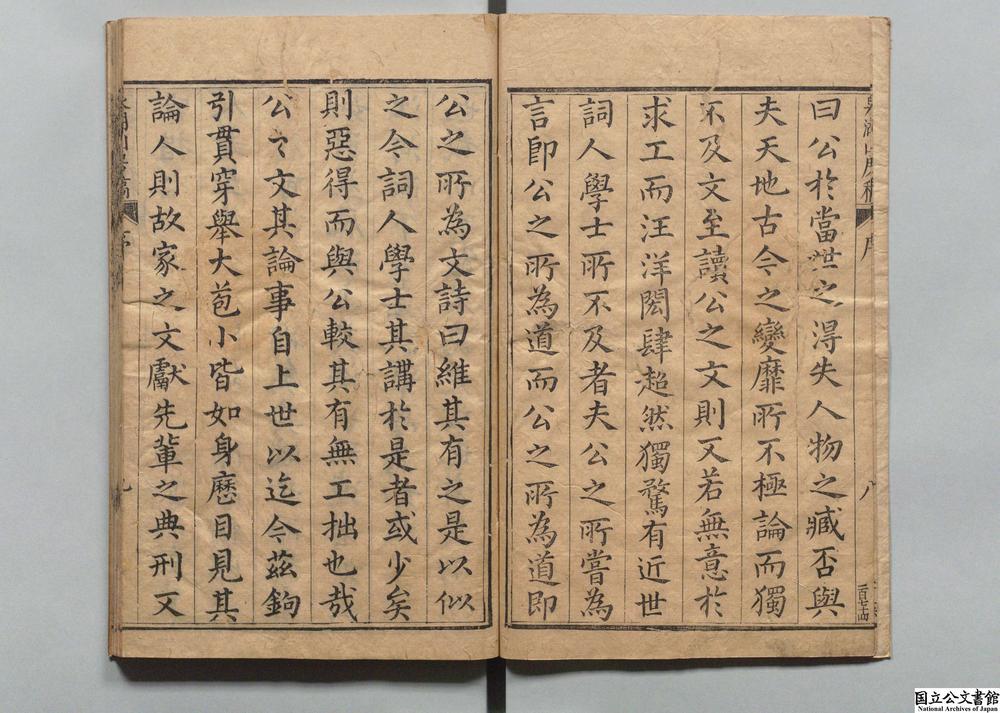 曰公於當世之得失人物之臧否與
夫天地古今之變靡所不極論而獨
不及文至讀公之文則又若無意於
求工而汪洋閎肆超然獨騖有近世
詞人學士所不及者夫公之所嘗為
言卽公之所為道而公之所為道即
公之所為文詩曰維其有之是以似
之今詞人學士其講於是者或少矣
則惡得而與公較其有無工拙也哉
公之文其論事自上世以迄今茲鉤
引貫穿舉大苞小皆如身歷目見其
論人則故家之文獻先輩之典刑又
序
八
序
九
国立公文書館
National Archives of Japan